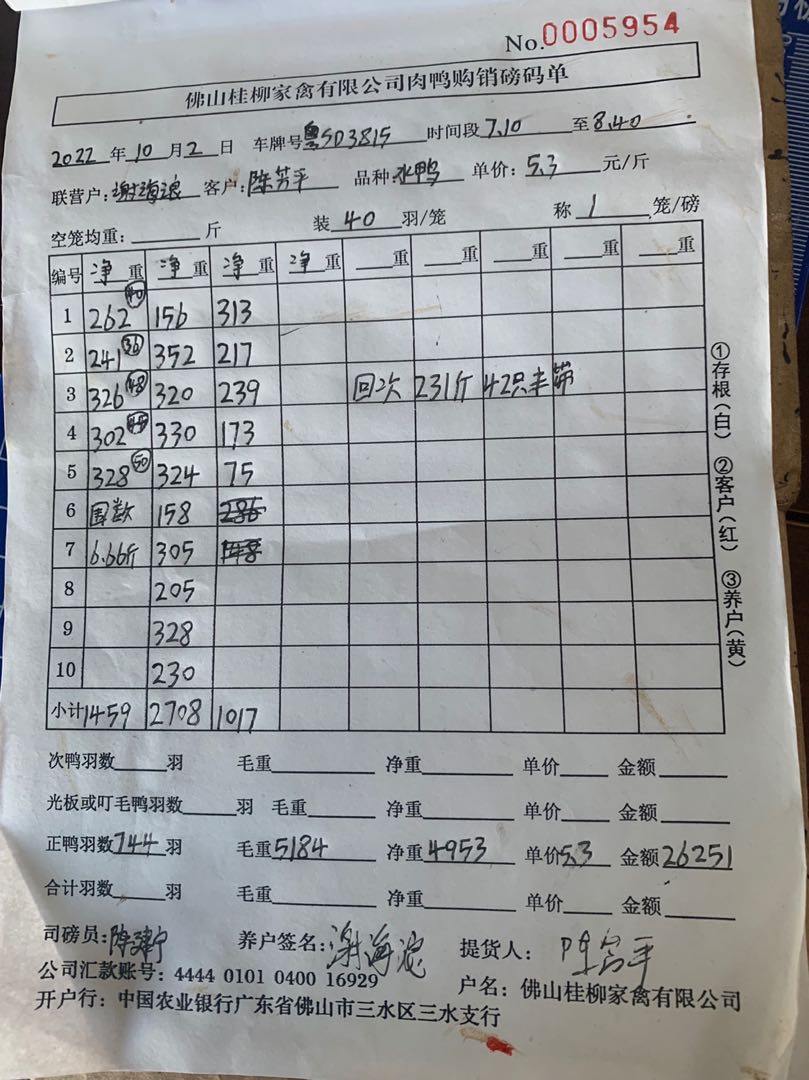 No.0005954
佛山桂柳家禽有限公司肉鸭购销磅码单
2022年10月2日 车牌号粤SD3815 时间段7.10至8.40
联营户:谢海浪 客户:陈芳平 品种水鸭 单价:5.3元/斤
空笼均重:____斤 装40羽/笼 称1笼/磅
编号 净重 净重 净重 净重 __重 __重 __重 __重 __重
1 262 40 156 313
2 241 36 352 217
3 326 48 320 239 回次 231斤 42只半
4 302 45 330 173
5 328 50 324 75
6 围数 158 286
7 6.66斤 305
8 205
9 328
10 230
小计 1459 2708 1017
次鸭羽数____羽 毛重____ 净重____ 单价____ 金额____
光板或叮毛鸭羽数____羽 毛重____ 净重____ 单价____ 金额____
正鸭羽数744羽 毛重5184 净重4953 单价5.3 金额26251
合计羽数____羽 毛重____ 净重____ 单价____ 金额____
司磅员:陈建宁 养户签名:谢海浪 提货人:
公司汇款账号:4444 0101 0400 16929 户名:佛山桂柳家禽有限公司
开户行:中国农业银行广东省佛山市三水区三水支行
①存根(白) ②客户(红) ③养户(黄)